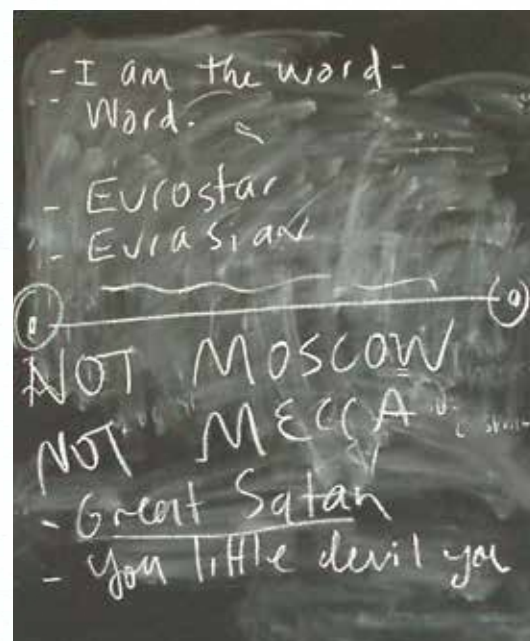 - I am the word -
- Word.
- Eurostar
- Eurasian
NOT MOSCOW
NOT MECCA
- Great Satan
- You little devil you